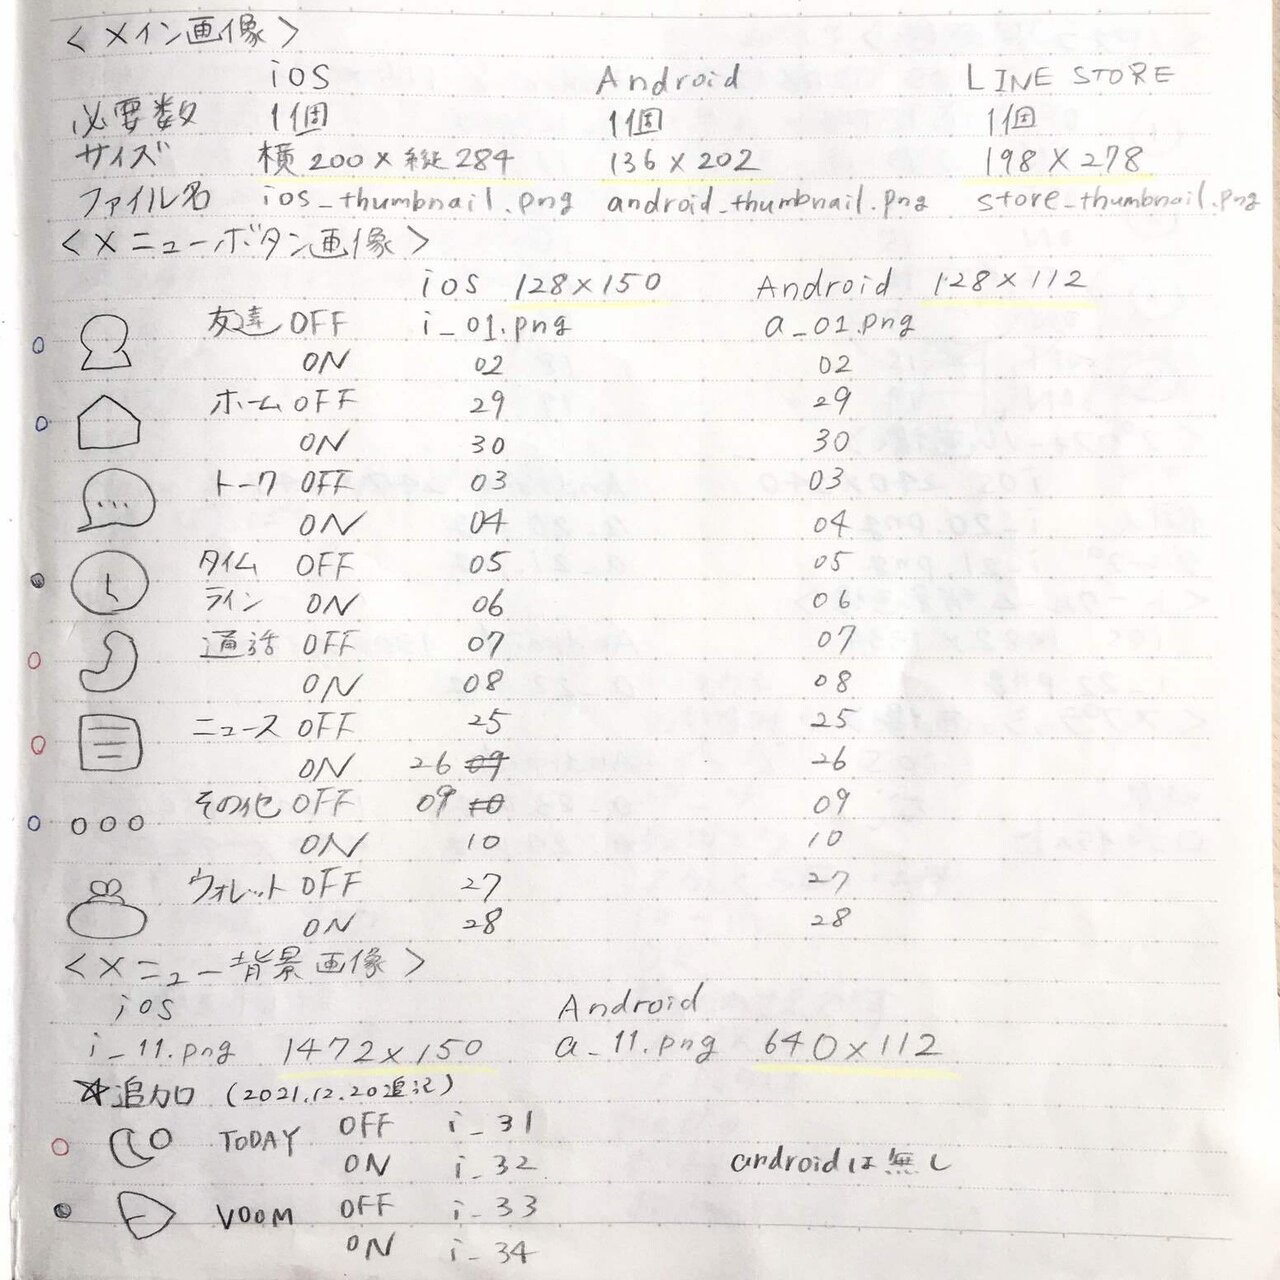 <メイン画像>
iOS Android LINE STORE
必要数 1個 1個 1個
サイズ 横200×縦284 136×202 198×278
ファイル名 ios_thumbnail.png android_thumbnail.png store_thumbnail.png
<メニューボタン画像>
iOS 128×150 Android 128×112
友達 OFF i_01.png a_01.png
ON 02 02
ホーム OFF 29 29
ON 30 30
トーク OFF 03 03
ON 04 04
タイム OFF 05 05
ライン ON 06 06
通話 OFF 07 07
ON 08 08
ニュース OFF 25 25
ON 26 09 26
その他 OFF 09 10 09
ON 10 10
ウォレット OFF 27 27
ON 28 28
<メニュー背景画像>
iOS Android
i_11.png 1472×150 a_11.png 640×112
☆追加 (2021.12.20追記)
TODAY OFF i_31
ON i_32 androidは無し
VOOM OFF i_33
ON i_34